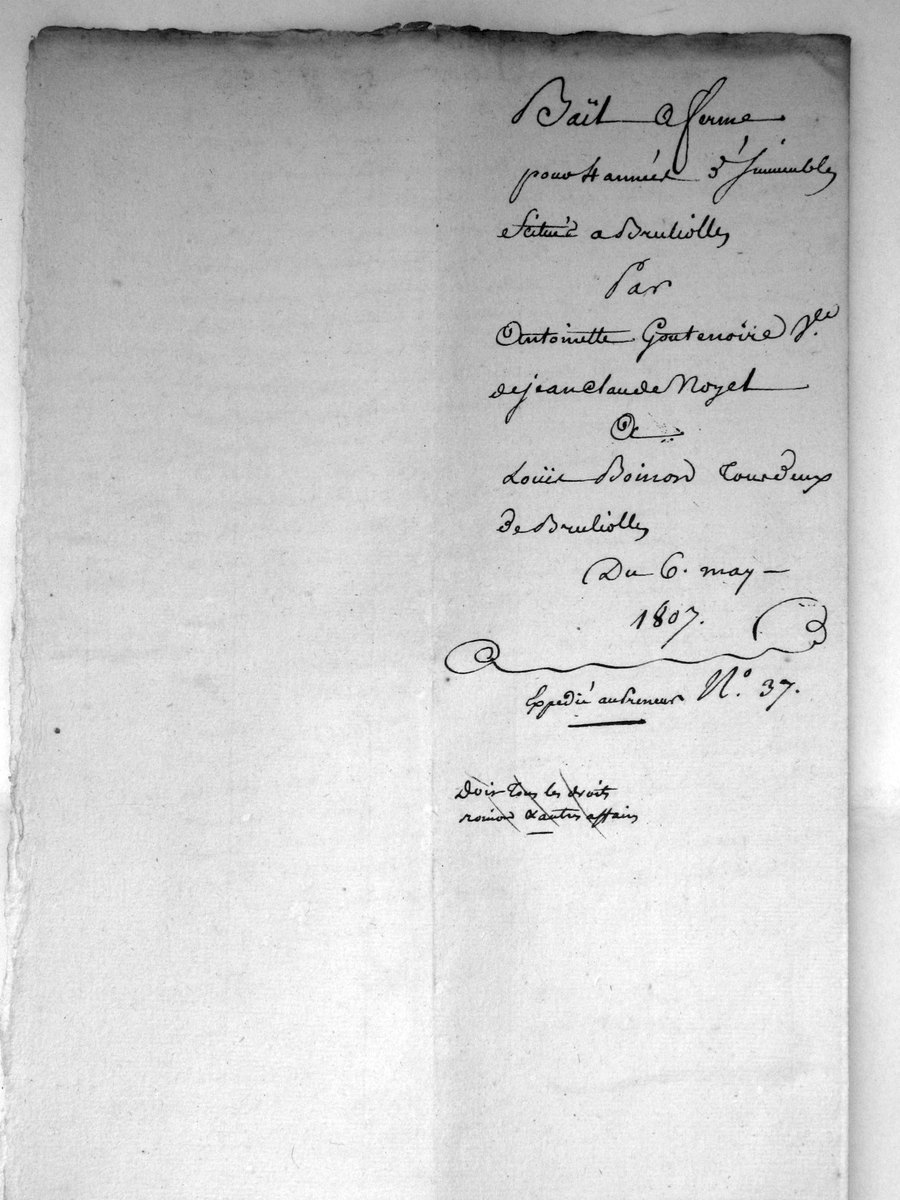 Baït a ferme
pour 4 années d'Immeubles
scitués a Brulliolles
Par
Antoinette Goutenoire Vve
de jean Claude Noyel
A
Loüis Boinon
de Brulliolles
Du 6. may -
1807.
Expedié au Preneur N° 37.
Doit tous les droits
& autres affaires